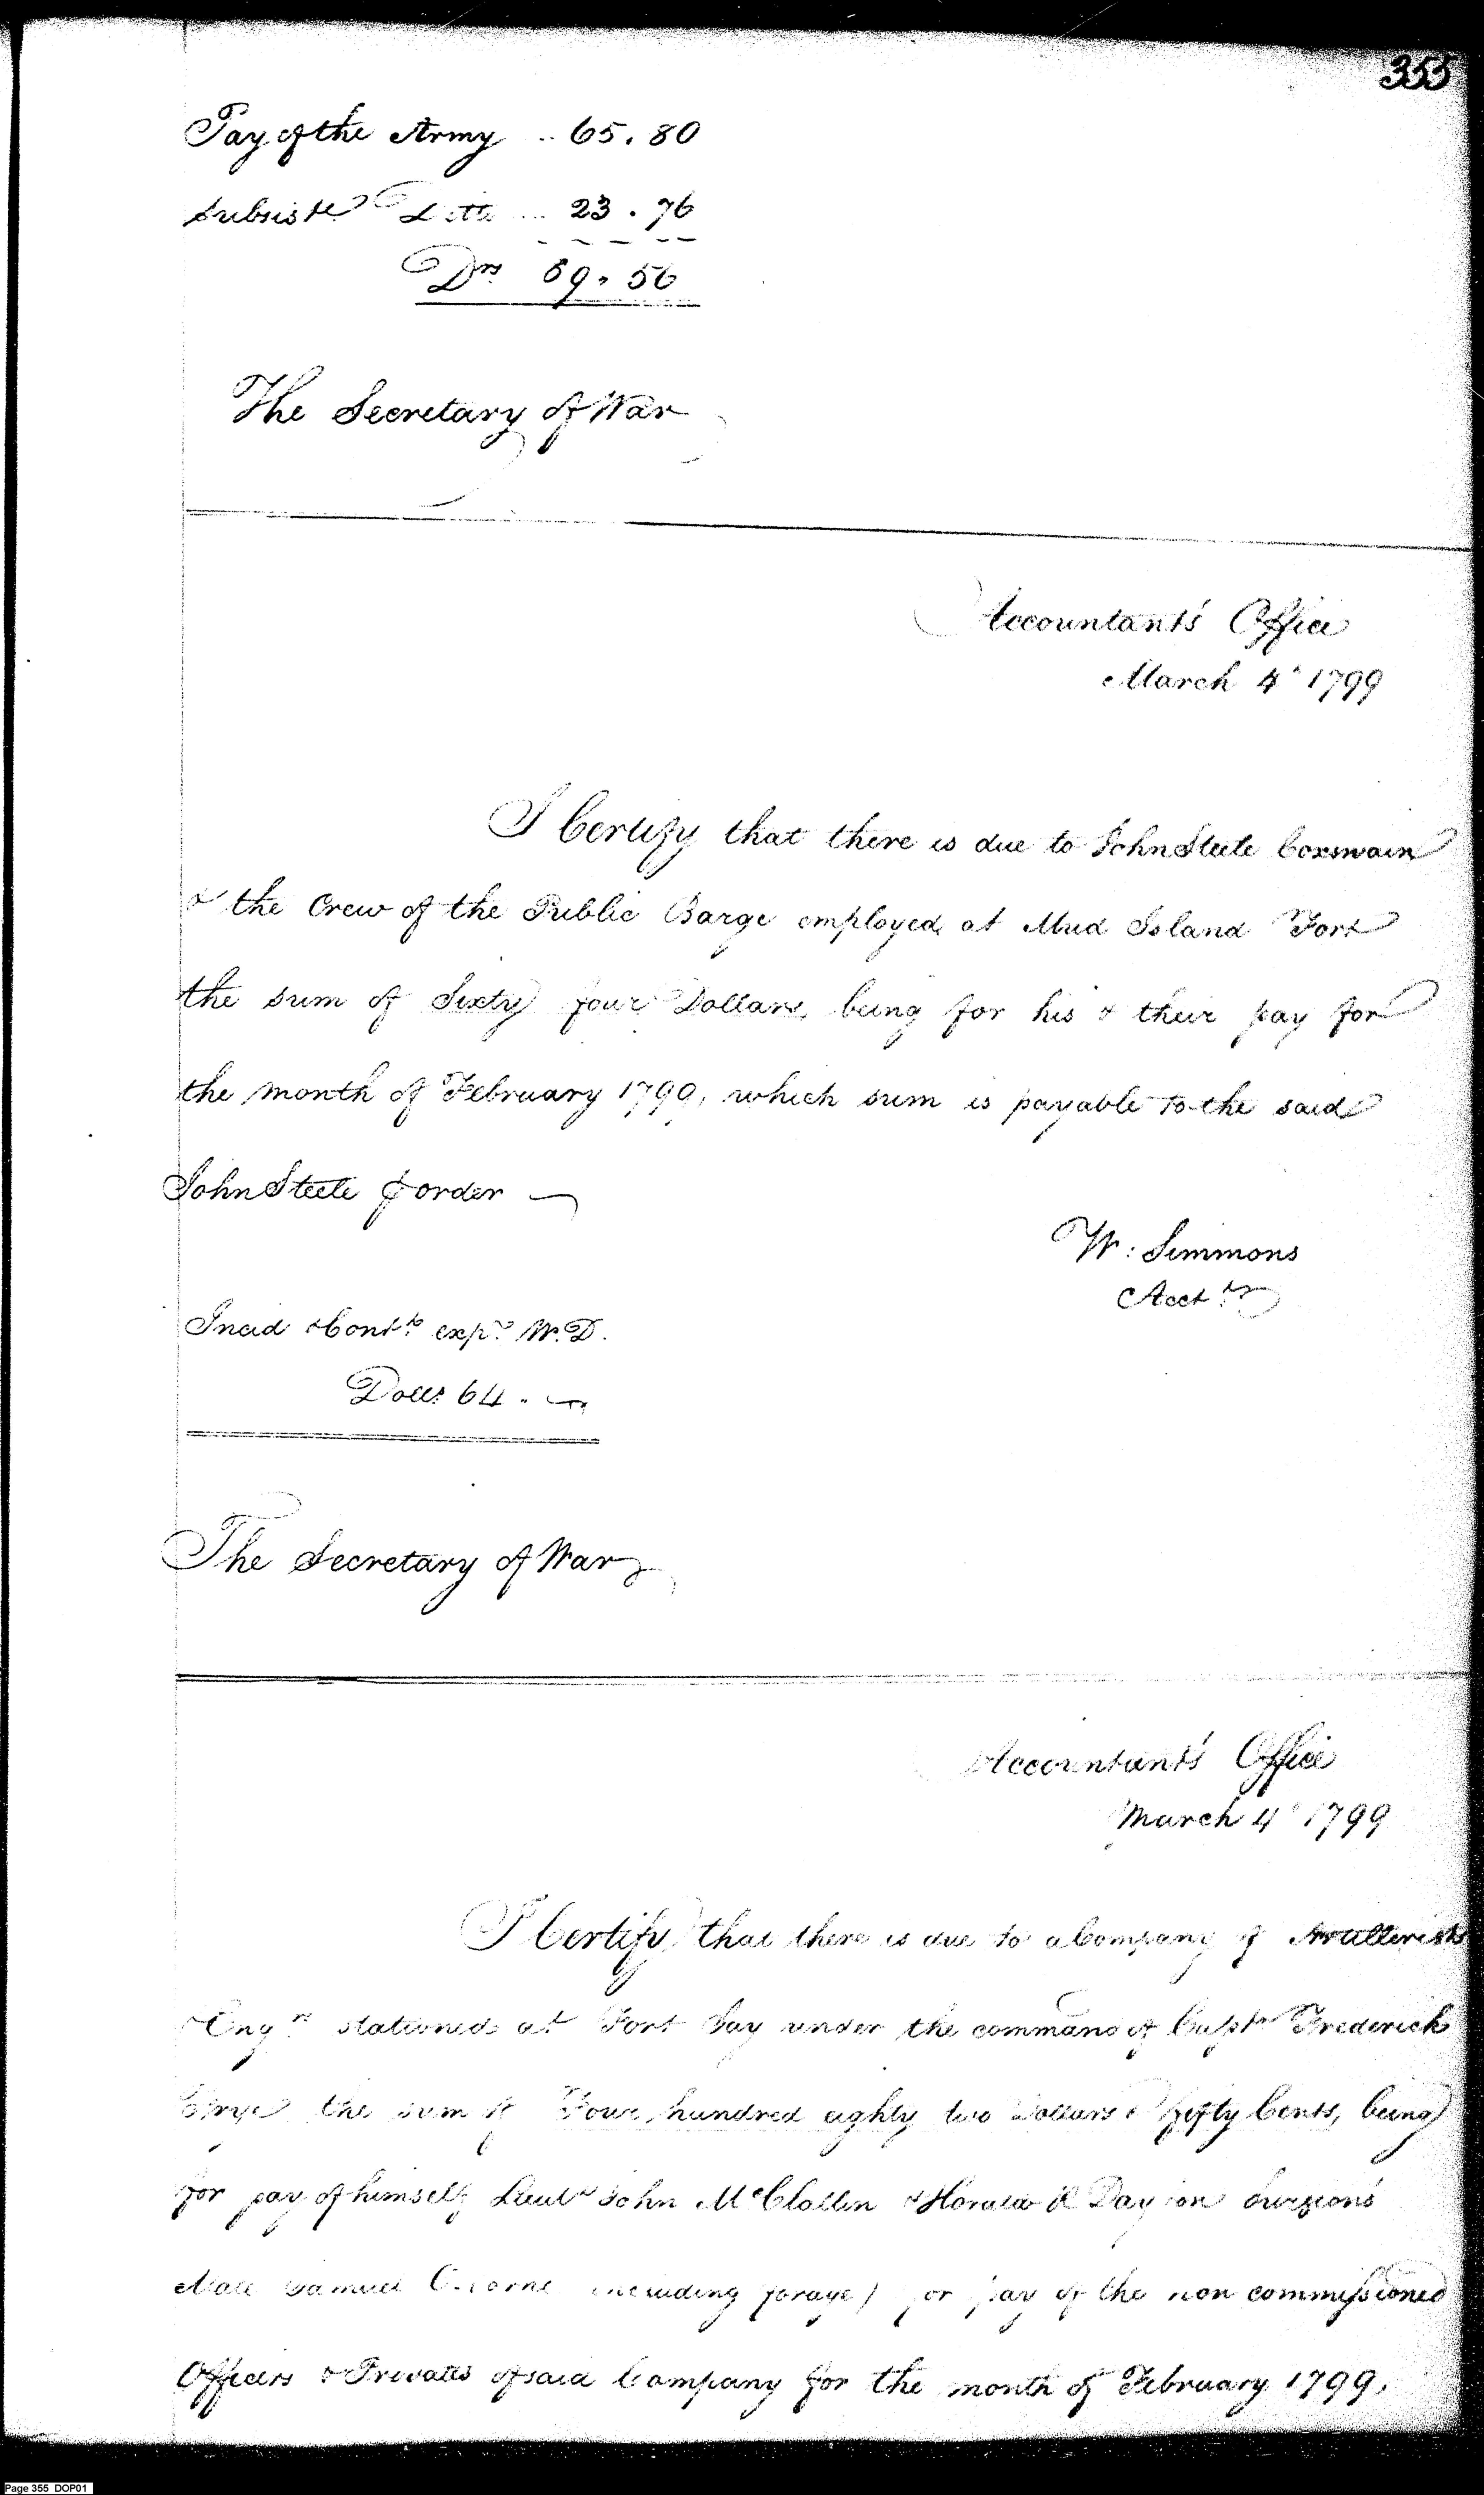 355
Pay of the Army .. 65.80
Subsistce Ditto ... 23.76
Drs 89.56
The Secretary of War
Accountant's Office
March 4th 1799
I Certify that there is due to John Steele Coxswain
& the Crew of the Public Barge employed at Mud Island Fort
the sum of Sixty four Dollars, being for his & their pay for
the month of February 1799, which sum is payable to the said
John Steele or order —
W: Simmons
Acctt
Incid & Contt exps W.D.
Dolls 64. —
The Secretary of War
Accountant's Office
March 4th 1799
I Certify that there is due to a Company of Artillerists
& Engrs stationed at Fort Jay under the command of Captn Frederick
Frye the sum of Four hundred eighty two Dollars & fifty Cents, being
for pay of himself Lieuts John McClallen & Horatio R Dayton Surgeons
Mate Samuel Osborne including forage) for pay of the non commissioned
Officers & Privates of said Company for the month of February 1799,
Page 355 DOP01